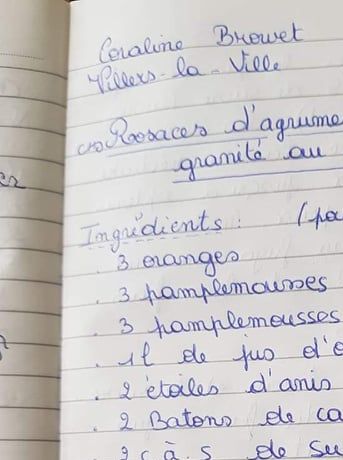 Coraline Browet
Villers-la-Ville
Rosaces d'agrume
granité au
Ingrédients : (po
. 3 oranges
. 3 pamplemousses
. 3 pamplemousses
. 1l de jus d'o
. 2 étoiles d'anis
. 2 Batons de ca
. 2 c.à.s de su